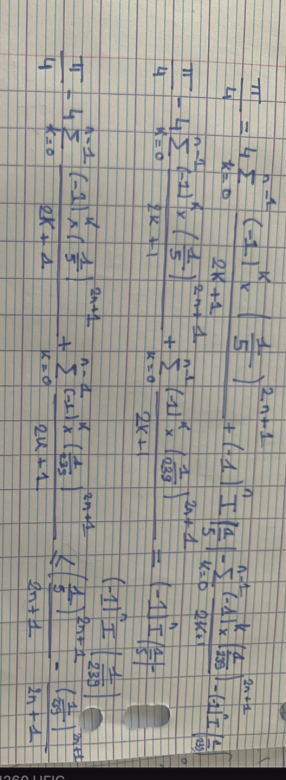 π/4 = 4 Σ_{k=0}^{n-1} (-1)^k × (1/5)^{2n+1} / 2k+1 + (-1)^n I(1/5) - Σ_{k=0}^{n-1} (-1)^k × (1/239)^{2n+1} / 2k+1 - (-1)^n I(1/239)
π/4 - 4 Σ_{k=0}^{n-1} (-1)^k × (1/5)^{2n+1} / 2k+1 + Σ_{k=0}^{n-1} (-1)^k × (1/239)^{2n+1} / 2k+1 = (-1)^n I(1/5) -
(-1)^n I(1/239)
π/4 - 4 Σ_{k=0}^{n-1} (-1)^k × (1/5)^{2n+1} / 2k+1 + Σ_{k=0}^{n-1} (-1)^k × (1/239)^{2n+1} / 2k+1 ≤ (1/5)^{2n+1} / 2n+1 - (1/239)^{2n+1} / 2n+1